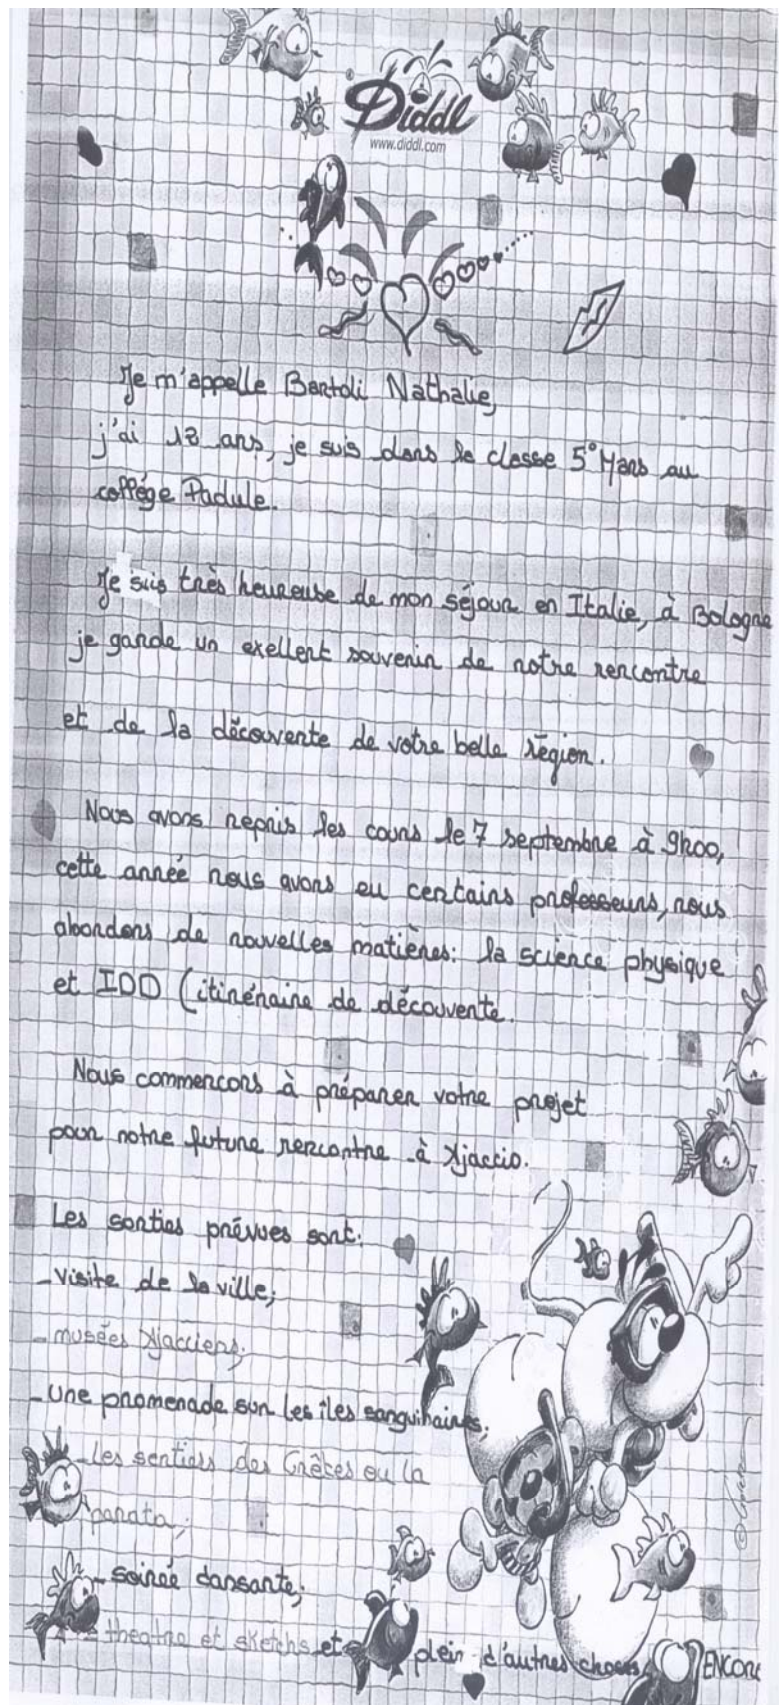 Diddl
www.diddl.com
Je m'appelle Bartoli Nathalie,
j'ai 12 ans, je suis dans la classe 5° Mars au
collége Padule.
Je suis très heureuse de mon séjour en Italie, à Bologne
je garde un exellent souvenir de notre rencontre
et de la découverte de votre belle région.
Nous avons repris les cours le 7 septembre à 9h00,
cette année nous avons eu certains professeurs, nous
abordons de nouvelles matières: la science physique
et IDD (itinéraire de découverte.
Nous commencons à préparer votre projet
pour notre future rencontre à Ajaccio.
Les sorties prévues sont:
- visite de la ville;
- musées Ajacciens;
- une promenade sur les îles sanguinaires;
- Les sentiers des Crêtes ou la
parata;
- soirée dansante;
- theatre et sketchs et plein d'autres choses ENCORE